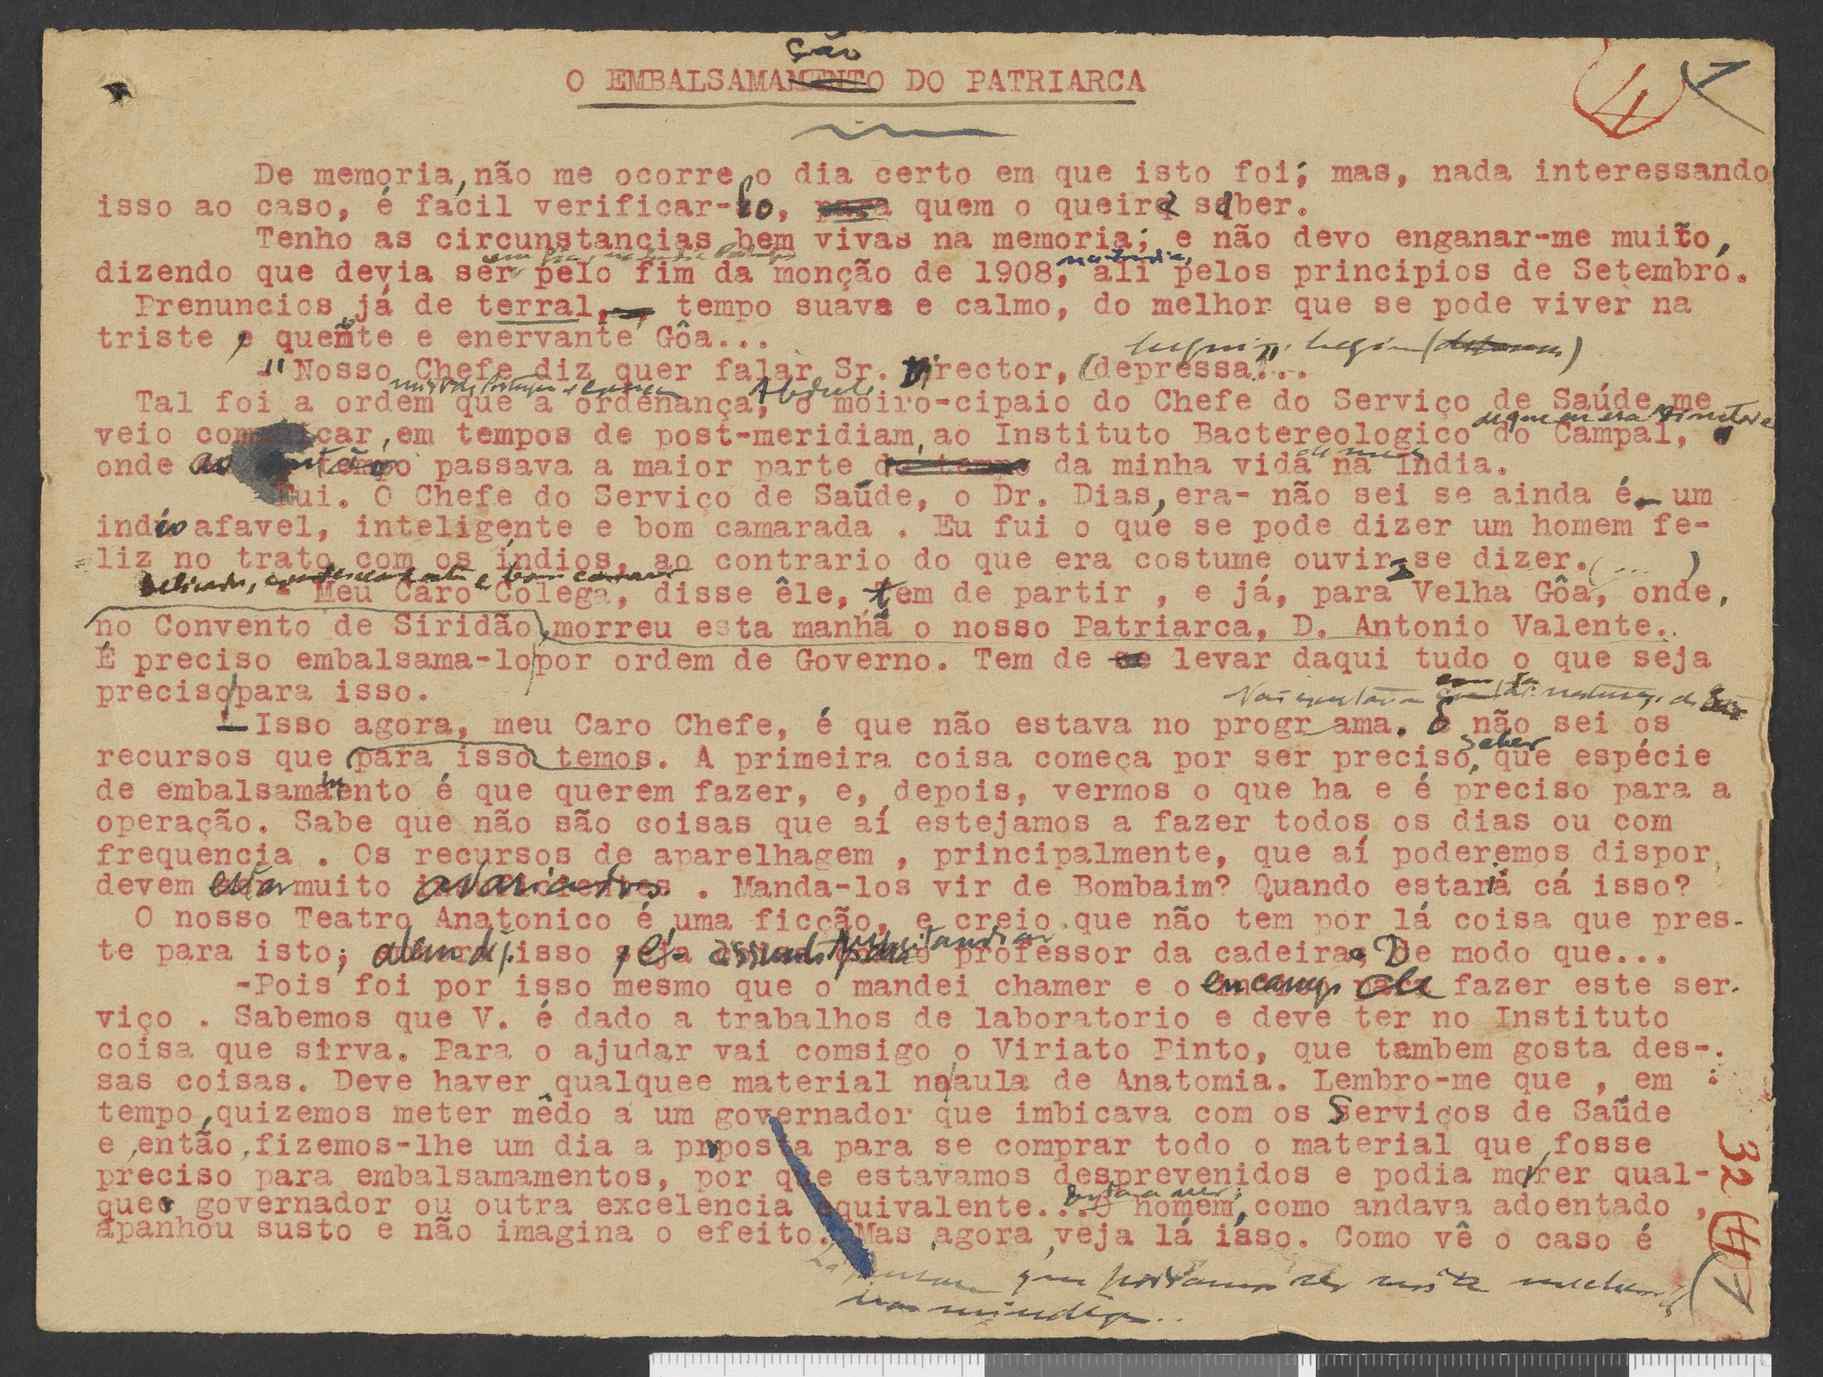 ção
O EMBALSAMAMENTO DO PATRIARCA
4 1
De memoria, não me ocorre o dia certo em que isto foi; mas, nada interessando
isso ao caso, é facil verificar-lo, para quem o queira saber.
Tenho as circunstancias bem vivas na memoria; e não devo enganar-me muito,
na India,
dizendo que devia ser pelo fim da monção de 1908, ali pelos principios de Setembro.
Prenuncios já de terral, tempo suave e calmo, do melhor que se pode viver na
triste e quente e enervante Gôa...
"Nosso Chefe diz quer falar Sr. Director, (depressa"...
Abdul
Tal foi a ordem que a ordenança, o moiro-cipaio do Chefe do Serviço de Saúde me
de que eu era Director
veio comunicar, em tempos de post-meridiam, ao Instituto Bactereologico do Campal,
onde passava a maior parte do tempo da minha vida na India.
Fui. O Chefe do Serviço de Saúde, o Dr. Dias, era- não sei se ainda é- um
indio afavel, inteligente e bom camarada . Eu fui o que se pode dizer um homem fe-
liz no trato com os índios, ao contrario do que era costume ouvir-se dizer. (...)
- Meu Caro Colega, disse êle, tem de partir , e já, para Velha Gôa, onde,
no Convento de Siridão, morreu esta manhã o nosso Patriarca, D. Antonio Valente.
É preciso embalsama-lo por ordem de Governo. Tem de levar daqui tudo o que seja
preciso para isso.
-Isso agora, meu Caro Chefe, é que não estava no programa. E não sei os
saber
recursos que para isso temos. A primeira coisa começa por ser preciso, que espécie
de embalsamamento é que querem fazer, e, depois, vermos o que ha e é preciso para a
operação. Sabe que não são coisas que aí estejamos a fazer todos os dias ou com
frequencia . Os recursos de aparelhagem , principalmente, que aí poderemos dispor,
devem estar muito avariados . Manda-los vir de Bombaim? Quando estaria cá isso?
O nosso Teatro Anatonico é uma ficção, e creio que não tem por lá coisa que pres-
te para isto; alem d'isso é professor da cadeira. De modo que...
-Pois foi por isso mesmo que o mandei chamer e o fazer este ser-
viço . Sabemos que V. é dado a trabalhos de laboratorio e deve ter no Instituto
coisa que sirva. Para o ajudar vai comsigo o Viriato Pinto, que tambem gosta des-
sas coisas. Deve haver qualquee material na aula de Anatomia. Lembro-me que , em
tempo, quizemos meter mêdo a um governador que imbicava com os Serviços de Saúde
e, então, fizemos-lhe um dia a proposta para se comprar todo o material que fosse
preciso para embalsamamentos, por que estavamos desprevenidos e podia morrer qual-
quer governador ou outra excelencia equivalente... O homem, como andava adoentado ,
apanhou susto e não imagina o efeito. Mas agora, veja lá isso. Como vê o caso é
32 4